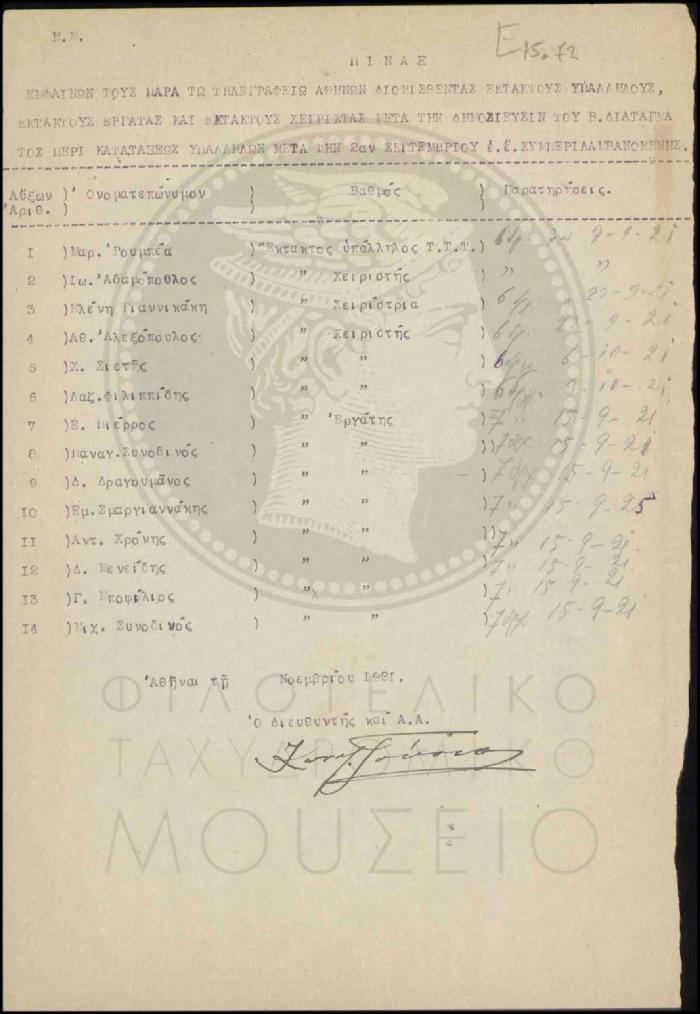 Μ.Μ.
Ε15.72
ΠΙΝΑΞ
ΕΜΦΑΙΝΩΝ ΤΟΥΣ ΠΑΡΑ ΤΩ ΤΗΛΕΓΡΑΦΕΙΩ ΑΘΗΝΩΝ ΔΙΟΡΙΣΘΕΝΤΑΣ ΕΚΤΑΚΤΟΥΣ ΥΠΑΛΛΗΛΟΥΣ,
ΕΚΤΑΚΤΟΥΣ ΕΡΓΑΤΑΣ ΚΑΙ ΕΚΤΑΚΤΟΥΣ ΧΕΙΡΙΣΤΑΣ ΜΕΤΑ ΤΗΝ ΔΗΜΟΣΙΕΥΣΙΝ ΤΟΥ Β.ΔΙΑΤΑΓΜΑ
ΤΟΣ ΠΕΡΙ ΚΑΤΑΤΑΞΕΩΣ ΥΠΑΛΛΗΛΩΝ ΜΕΤΑ ΤΗΝ 2αν ΣΕΠΤΕΜΒΡΙΟΥ ἐ.ἔ.ΣΥΜΠΕΡΙΛΑΜΒΑΝΟΜΕΝΗΣ.
Αὔξων )'Ονοματεπώνυμον ) Βαθμός ) Παρατηρήσεις.
'Αριθ. ) )
1 )Μαρ.'Ρουμπέα )"Εκτακτος ὑπάλληλος Τ.Τ.Τ.) 9-9-21
2 )Ιω.'Αδαμόπουλος ) " Χειριστής ) " "
3 )Ελένη Γιαννικάκη ) " Χειρίστρια ) -9-21
4 )Αθ.'Αλεξόπουλος ) " Χειριστής )
5 )Χ. Σιετῆς ) " " ) 6-10-21
6 )Λαζ.Φιλιππίδης ) " " ) -10-21
7 )Ε. Μιέρρος ) " 'Εργάτης ) 7 " 15-9-21
8 )Παναγ.Συνοδινός ) " " )) 15-9-21
9 )Δ. Δραγουμᾶνος ) " " ) 15-9-21
10 )Εμ.Σμαργιαννάκης ) " " ) 7 " 15-9-25
11 )Αντ. Χρόνης ) " " )) 7 " 15-9-21
12 )Δ. Μενεΐδης ) " " ) 7 " 15-9-21
13 )Γ. Μποφίλιος ) " ) 7 " 15-9-21
14 )Μιχ. Συνοδινός ) " " ) 15-9-21
'Αθῆναι τῇ Νοεμβρίου 1921.
'Ο Διευθυντής καί Α.Α.
ΦΙΛΟΤΕΛΙΚΟ
ΤΑΧΥΔΡΟΜΙΚΟ
ΜΟΥΣΕΙΟ